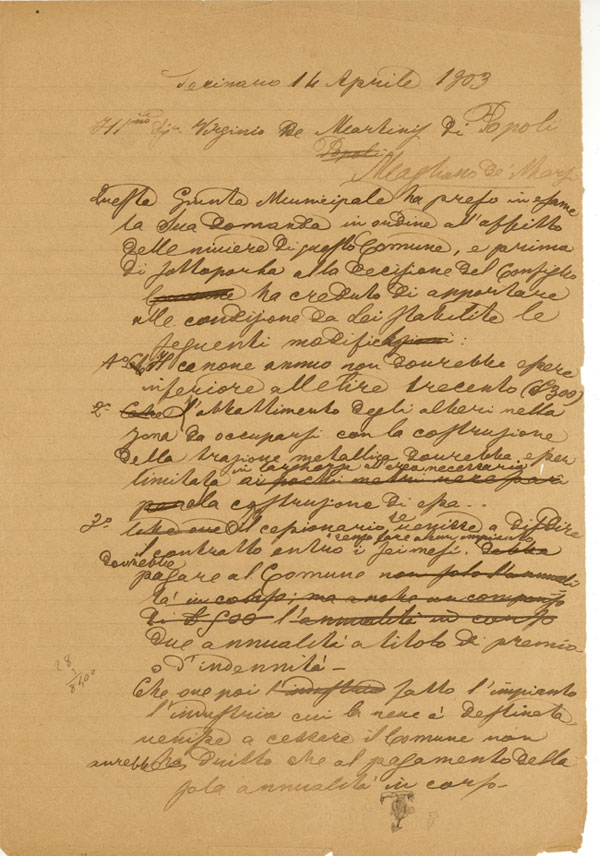 14 Aprile 1903
Ill.mo Sig. Virginio De Martinis di Popoli
Popoli
Magliano de' Marsi
Questa Giunta Municipale ha preso in esame
la Sua domanda in ordine all'affitto
delle niviere di questo Comune, e prima
di sottoporla alla decisione del Consiglio
ha creduto di apportare
alle condizione da Lei stabilite le
seguenti modifiche:
1º Il canone annuo non dovrebbe essere
inferiore alle lire trecento (£300)
2º l'abbattimento degli alberi nella
zona da occuparsi con la costruzione
della trazione metallica dovrebbe esser
in larghezza all'area necessaria
limitata ai pochi metri necessari
per la costruzione di essa..
3º il cessionario se venisse a disdire
senza fare alcun impianto
il contratto entro i sei mesi. debba
dovrebbe
pagare al Comune non solo l'annuali
tà in corso, ma anche un compenso
di £500 l'annualità in corso
due annualità a titolo di premio
o d'indennità -
28
8400
Che ove poi l'industria fatto l'impianto
l'industria cui la neve è destinata
venisse a cessare il Comune non
avrebbe dritto che al pagamento della
sola annualità in corso -